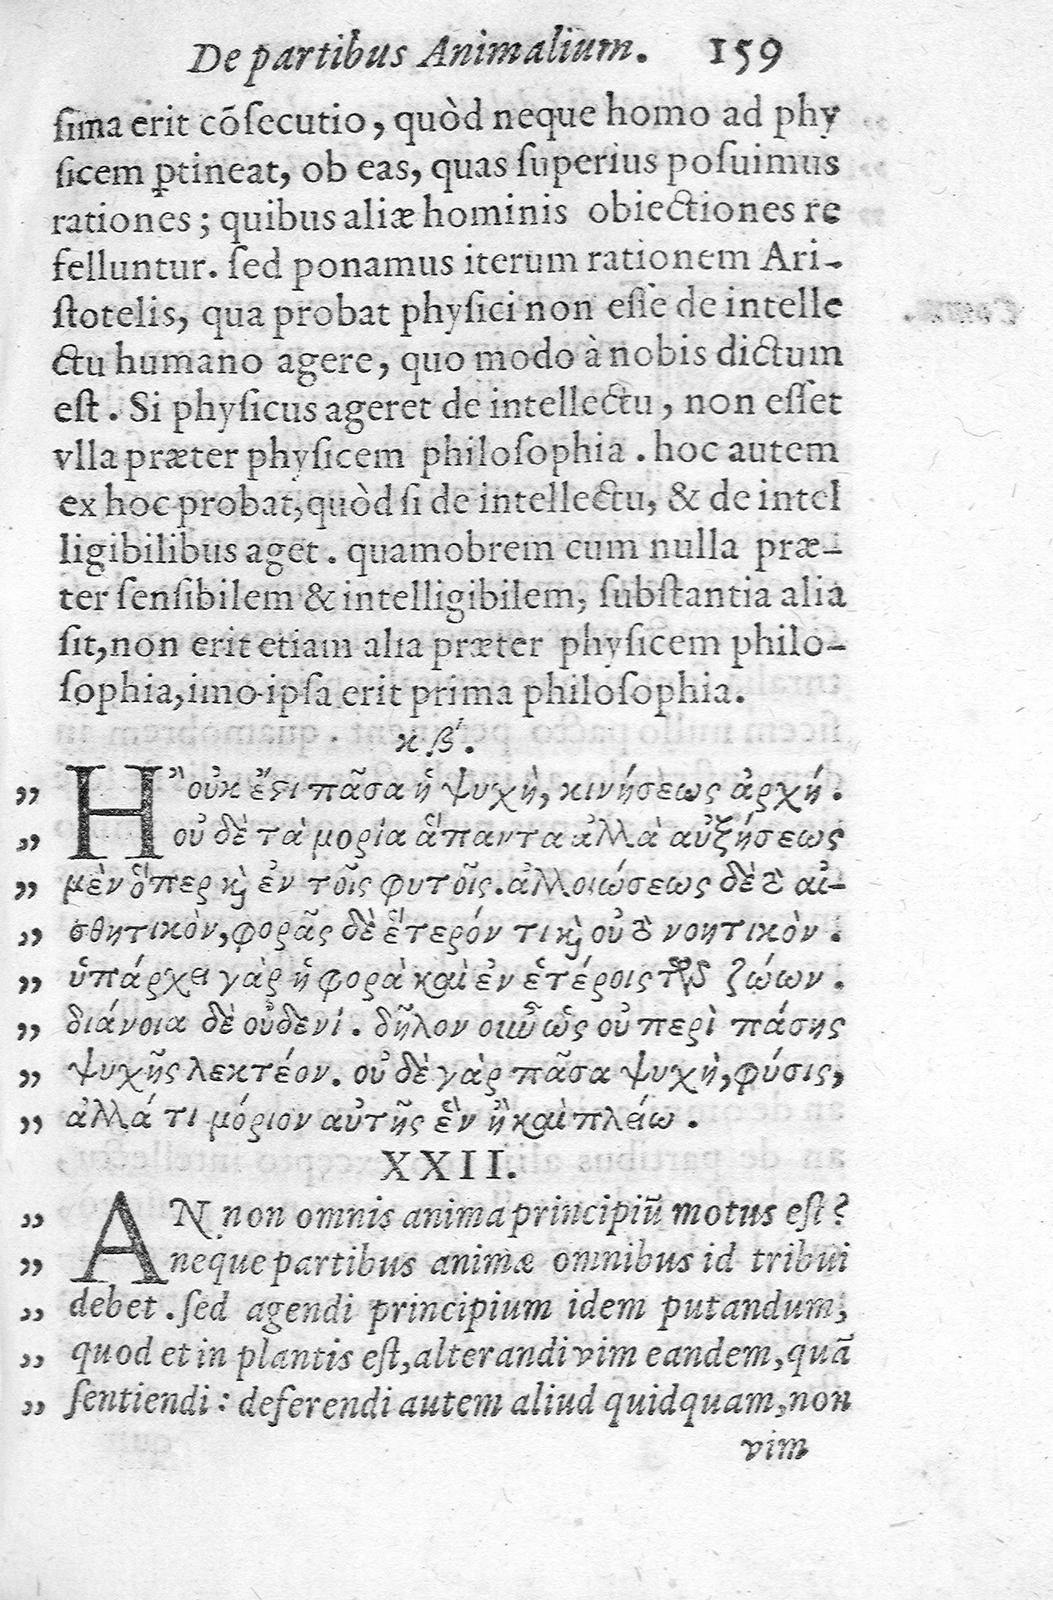 De partibus Animalium. 159
ſima erit cõſecutio, quòd neque homo ad phy
ſicem ꝑtineat, ob eas, quas ſuperius poſuimus
rationes; quibus aliæ hominis obiectiones re
felluntur. ſed ponamus iterum rationem Ari-
ſtotelis, qua probat phyſici non eſſe de intelle
ctu humano agere, quo modo à nobis dictum
eſt. Si phyſicus ageret de intellectu, non eſſet
vlla præter phyſicem philoſophia. hoc autem
ex hoc probat, quòd ſi de intellectu, & de intel
ligibilibus aget. quamobrem cum nulla præ-
ter ſenſibilem & intelligibilem, ſubſtantia alia
ſit, non erit etiam alia præter phyſicem philo-
ſophia, imo ipſa erit prima philoſophia.
κβ'.
,, Η῍ οὐκ ἔϛι πᾶσα ἡ ψυχὴ, κινήσεως ἀρχή.
,, οὐ δὲ τὰ μορία ἅπαντα ἀλλὰ αὐξήσεως
,, μὲν ὅπερ κỳ ἐν τοῖς φυτοῖς. ἀλλοιώσεως δὲ τὸ αἰ-
,, σθητικὸν, φορᾶς δὲ ἕτερόν τι κỳ οὐ τὸ νοητικὸν.
,, ὑπάρχει γὰρ ἡ φορὰ καὶ ἐν ἑτέροις τῶν ζώων.
,, διάνοια δὲ οὐδενί. δῆλον οιῶ ὡς οὐ περὶ πάσης
,, ψυχῆς λεκτέον. οὐ δὲ γὰρ πᾶσα ψυχὴ, φύσις,
,, ἀλλά τι μόριον αὐτῆς ἓν ἢ καὶ πλείω.
XXII.
,, AN non omnis anima principiũ motus eſt?
,, neque partibus animæ omnibus id tribui
,, debet. ſed agendi principium idem putandum,
,, quod et in plantis eſt, alterandi vim eandem, quã
,, ſentiendi: deferendi autem aliud quidquam, non
vim